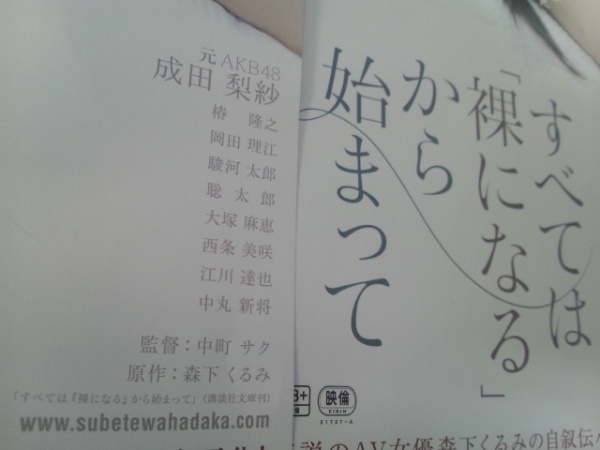 すべては
「裸になる」
から
始まって
元AKB48
成田 梨紗
椿 隆之
岡田 理江
駿河 太郎
聡 太 郎
大塚 麻恵
西条 美咲
江川 達也
中丸 新将
監督：中町 サク
原作：森下 くるみ
「すべては『裸になる』から始まって」(講談社文庫刊)
www.subetewahadaka.com
映倫
EIRIN
説のAV女優森下くるみの自叙伝